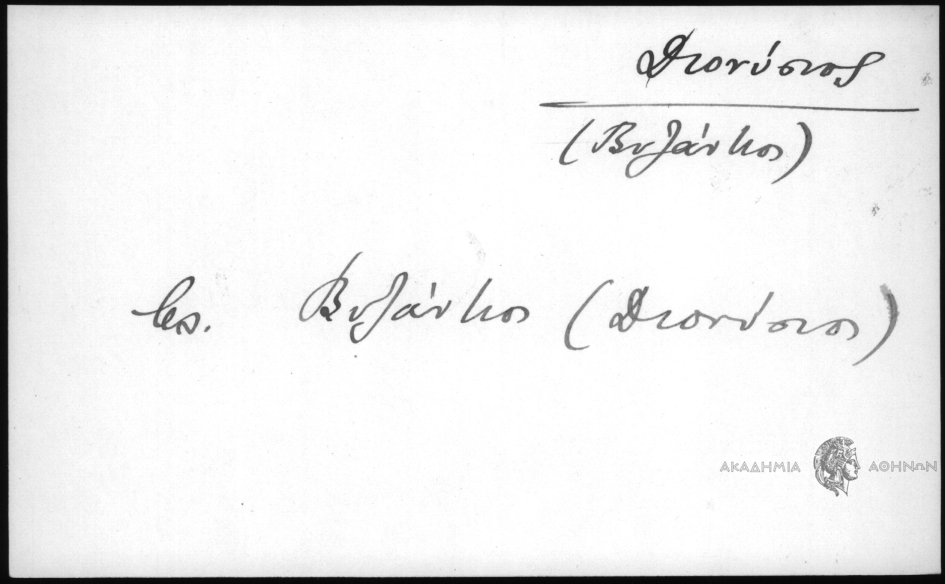 Διονύσιος
(Βυζάντιος)
Βυζάντιος (Διονύσιος)
ΑΚΑΔΗΜΙΑ ΑΘΗΝΩΝ